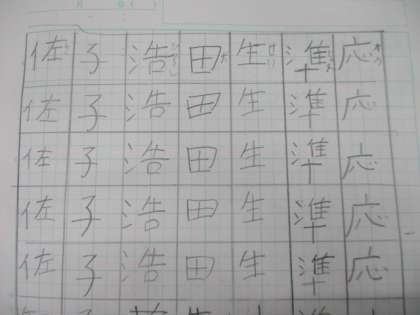 応応応応応
準準準準準
生生生生生
田田田田田
浩浩浩浩浩
子子子子子
佐佐佐佐佐